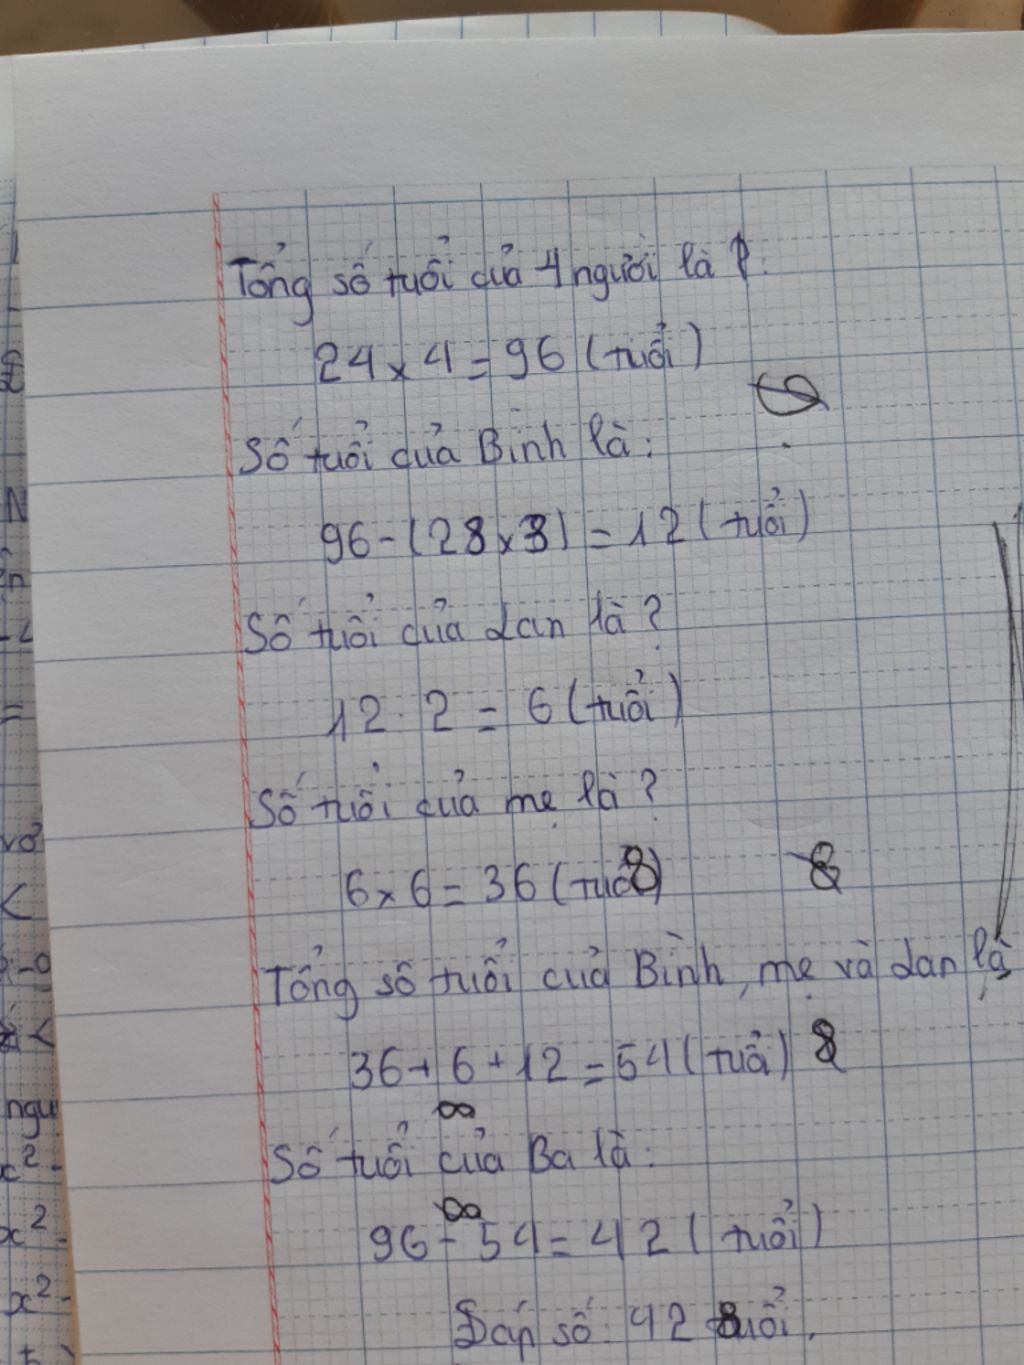 Tổng số tuổi của 4 người là :
24 x 4 = 96 (tuổi)
Số tuổi của Bình là:
96 - (28 x 3) = 12 (tuổi)
Số tuổi của Lan là?
12 : 2 = 6 (tuổi)
Số tuổi của mẹ là?
6 x 6 = 36 (tuổi)
8
Tổng số tuổi của Bình, mẹ và Lan là
36 + 6 + 12 = 54 (tuổi) 8
Số tuổi của Ba là:
96 - 54 = 42 (tuổi)
Đáp số: 42 tuổi.